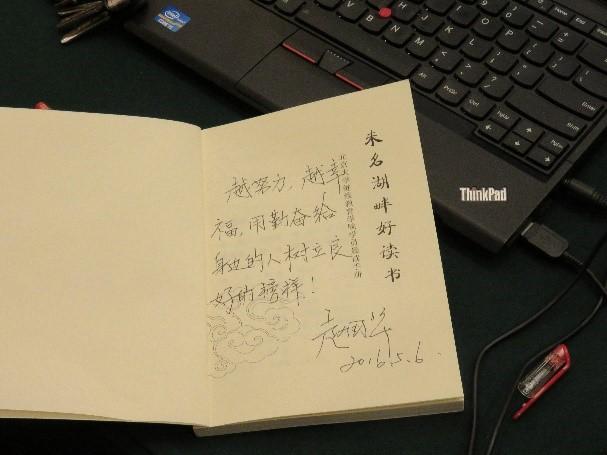 未名湖畔好读书
北京大学继续教育学院学员晨读手册
越努力,越幸
福,用勤奋给
身边的人树立良
好的榜样!
2016.5.6.
ThinkPad
intel